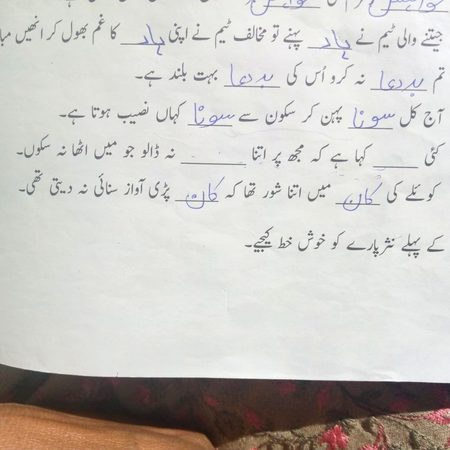 جیتنے والی ٹیم نے ہار پہنے تو مخالف ٹیم نے اپنی ہار کا غم بھول کر انھیں
تم بددعا نہ کرو اُس کی بددعا بہت بلند ہے۔
آج کل سونا پہن کر سکون سے سونا کہاں نصیب ہوتا ہے۔
کئی ____ کہا ہے کہ مجھ پر اتنا ______ نہ ڈالو جو میں اٹھا نہ سکوں۔
کوئلے کی کان میں اتنا شور تھا کہ کان پڑی آواز سنائی نہ دیتی تھی۔
کے پہلے نثر پارے کو خوش خط کیجیے۔